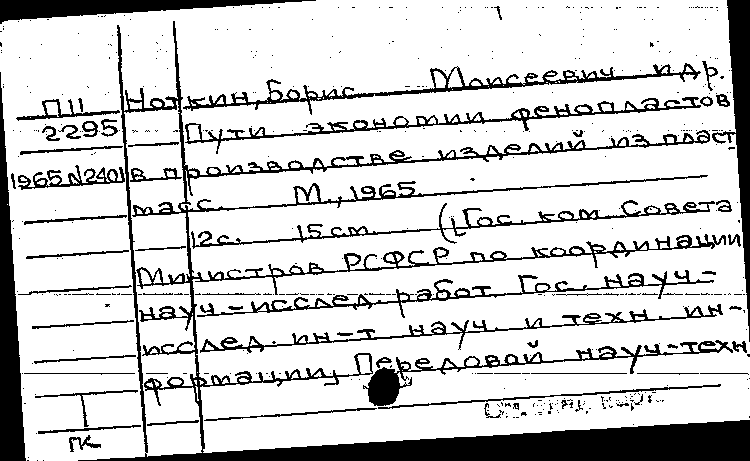 П11 Ноткин, Борис Моисеевич и др.
2295 Пути экономии фенопластов
1965 N2401 в производстве изделий из пласт
масс. М., 1965.
12с. 15 см. ([Гос. ком. Совета
Министров РСФСР по координации
науч.-исслед. работ. Гос. науч.-
исслед. ин-т науч. и техн. ин-
формации] Передовой науч.-техн
См. след. карт.
ГК